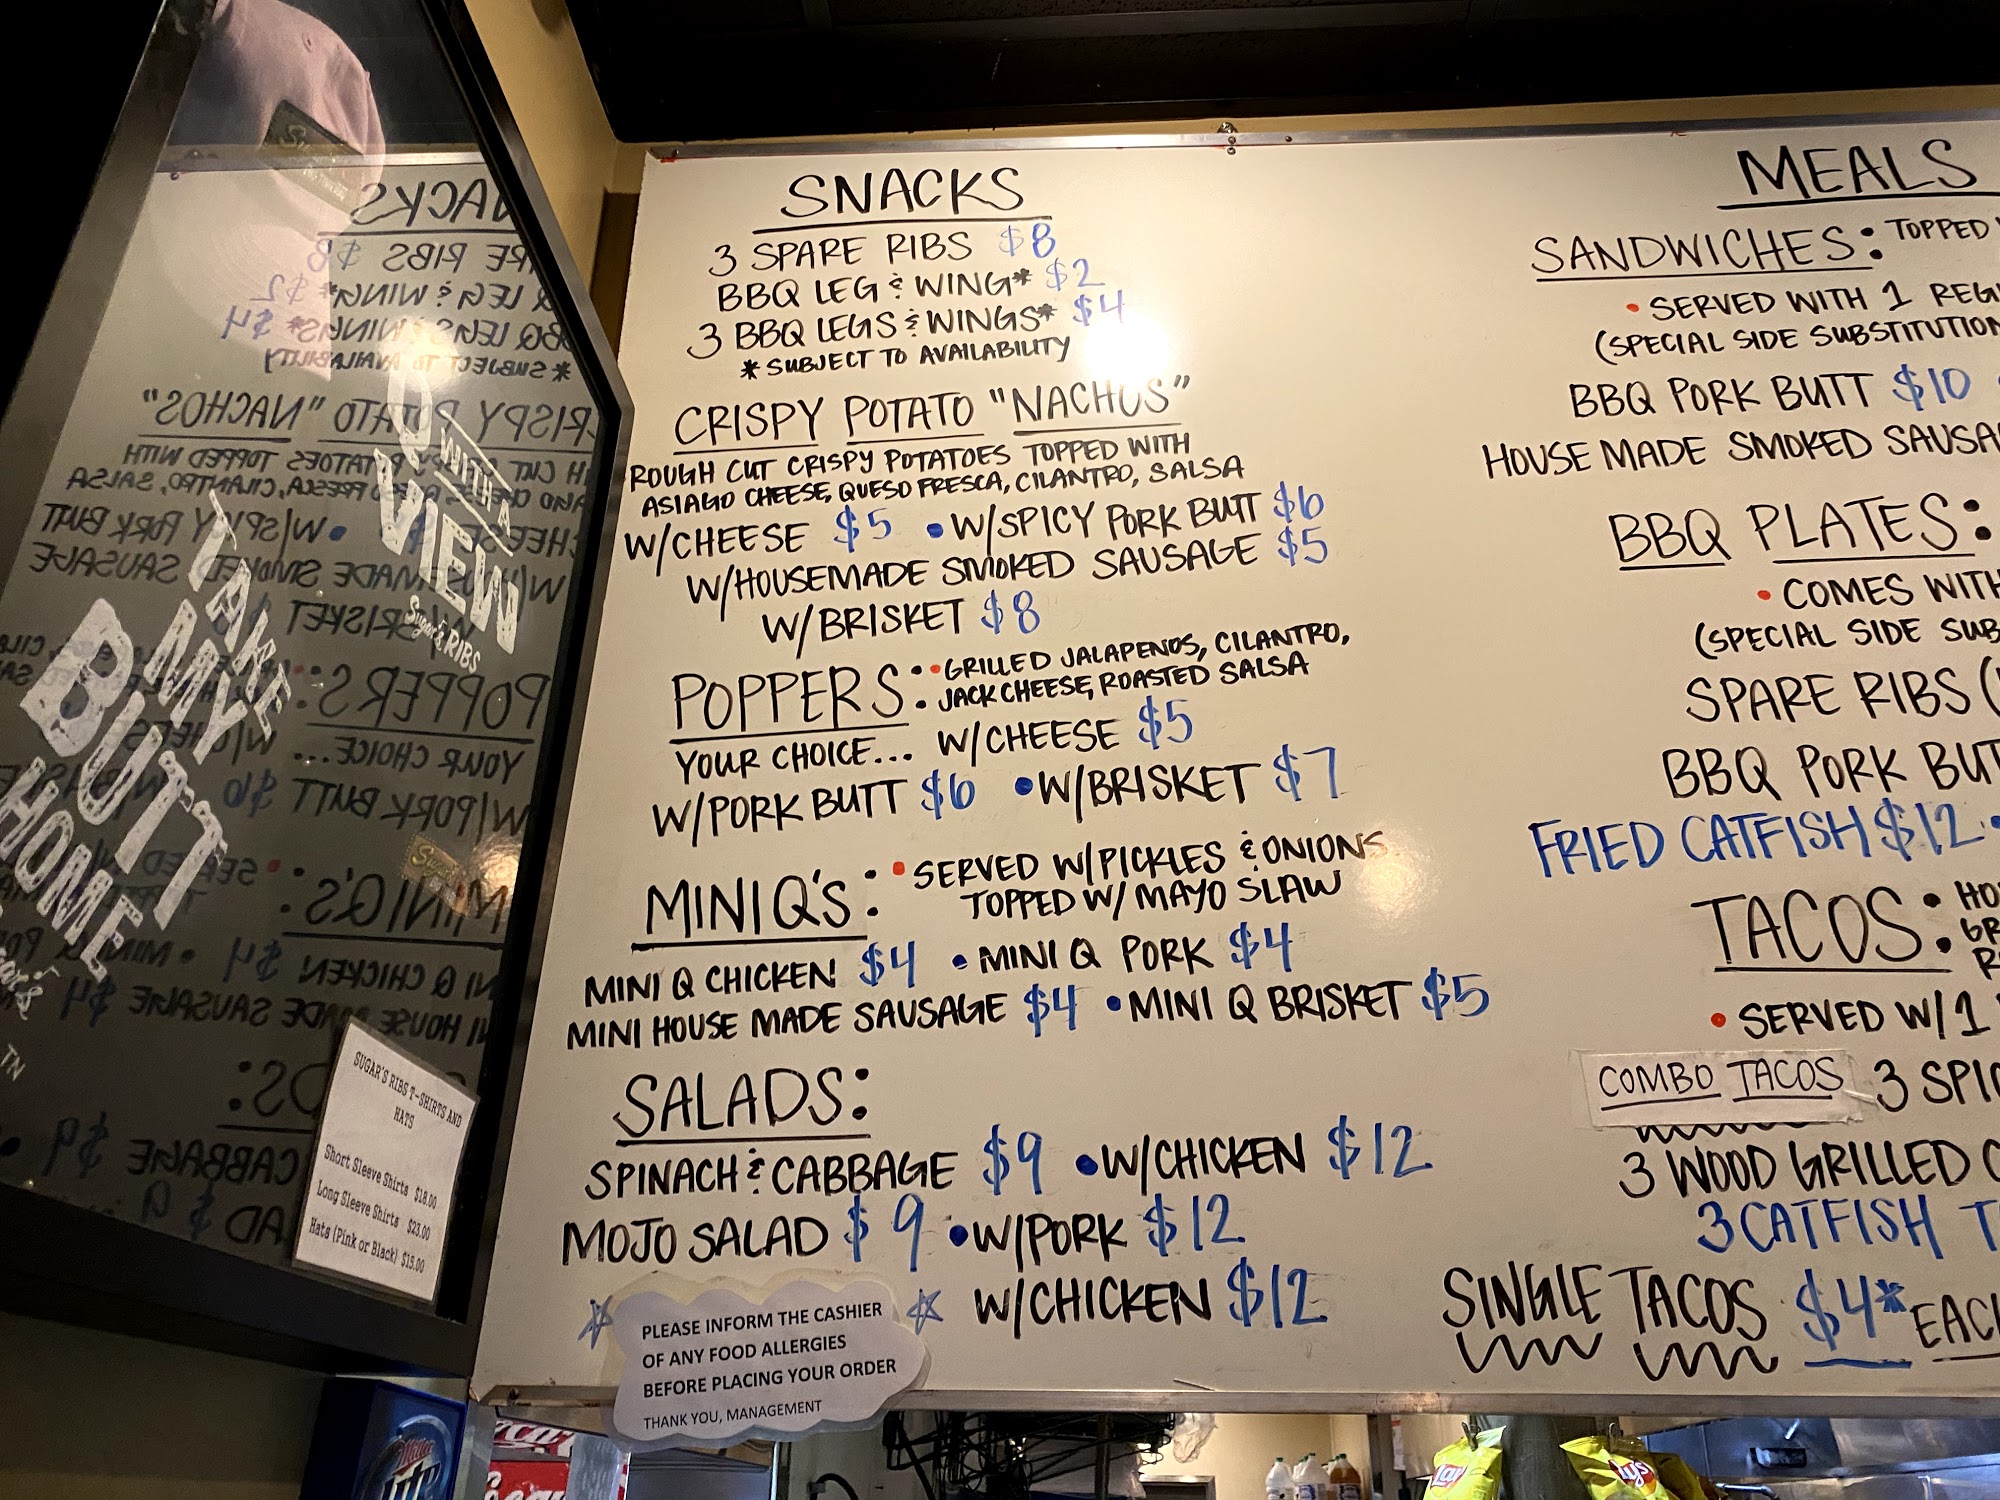 SNACKS
3 SPARE RIBS $8
BBQ LEG & WING* $2
3 BBQ LEGS & WINGS* $4
*SUBJECT TO AVAILABILITY
CRISPY POTATO "NACHOS"
ROUGH CUT CRISPY POTATOES TOPPED WITH
ASIAGO CHEESE, QUESO FRESCA, CILANTRO, SALSA
W/CHEESE $5 • W/SPICY PORK BUTT $6
W/HOUSEMADE SMOKED SAUSAGE $5
W/BRISKET $8
POPPERS: • GRILLED JALAPENOS, CILANTRO,
JACK CHEESE, ROASTED SALSA
YOUR CHOICE... W/CHEESE $5
W/PORK BUTT $6 • W/BRISKET $7
MINI Q'S: • SERVED W/PICKLES & ONIONS
TOPPED W/ MAYO SLAW
MINI Q CHICKEN $4 • MINI Q PORK $4
MINI HOUSE MADE SAUSAGE $4 • MINI Q BRISKET $5
SALADS:
SPINACH & CABBAGE $9 • W/CHICKEN $12
MOJO SALAD $9 • W/PORK $12
W/CHICKEN $12
PLEASE INFORM THE CASHIER
OF ANY FOOD ALLERGIES
BEFORE PLACING YOUR ORDER
THANK YOU, MANAGEMENT
MEALS
SANDWICHES: TOPPED
• SERVED WITH 1
(SPECIAL SIDE
BBQ PORK BUTT $10
HOUSE MADE SMOKED
BBQ PLATES:
• COMES WITH
(SPECIAL SIDE
SPARE RIBS (
BBQ PORK
FRIED CATFISH $12 •
TACOS:
• SERVED W/1
COMBO TACOS 3
3 WOOD GRILLED
3 CATFISH
SINGLE TACOS $4*
TAKE
MY
BUTT
HOME
WITH A
VIEW
Sugar's RIBS
TN
SUGAR'S RIBS T-SHIRTS AND
HATS
Short Sleeve Shirts $18.00
Long Sleeve Shirts $23.00
Hats (Pink or Black) $15.00
Miller
Lite
Lay's